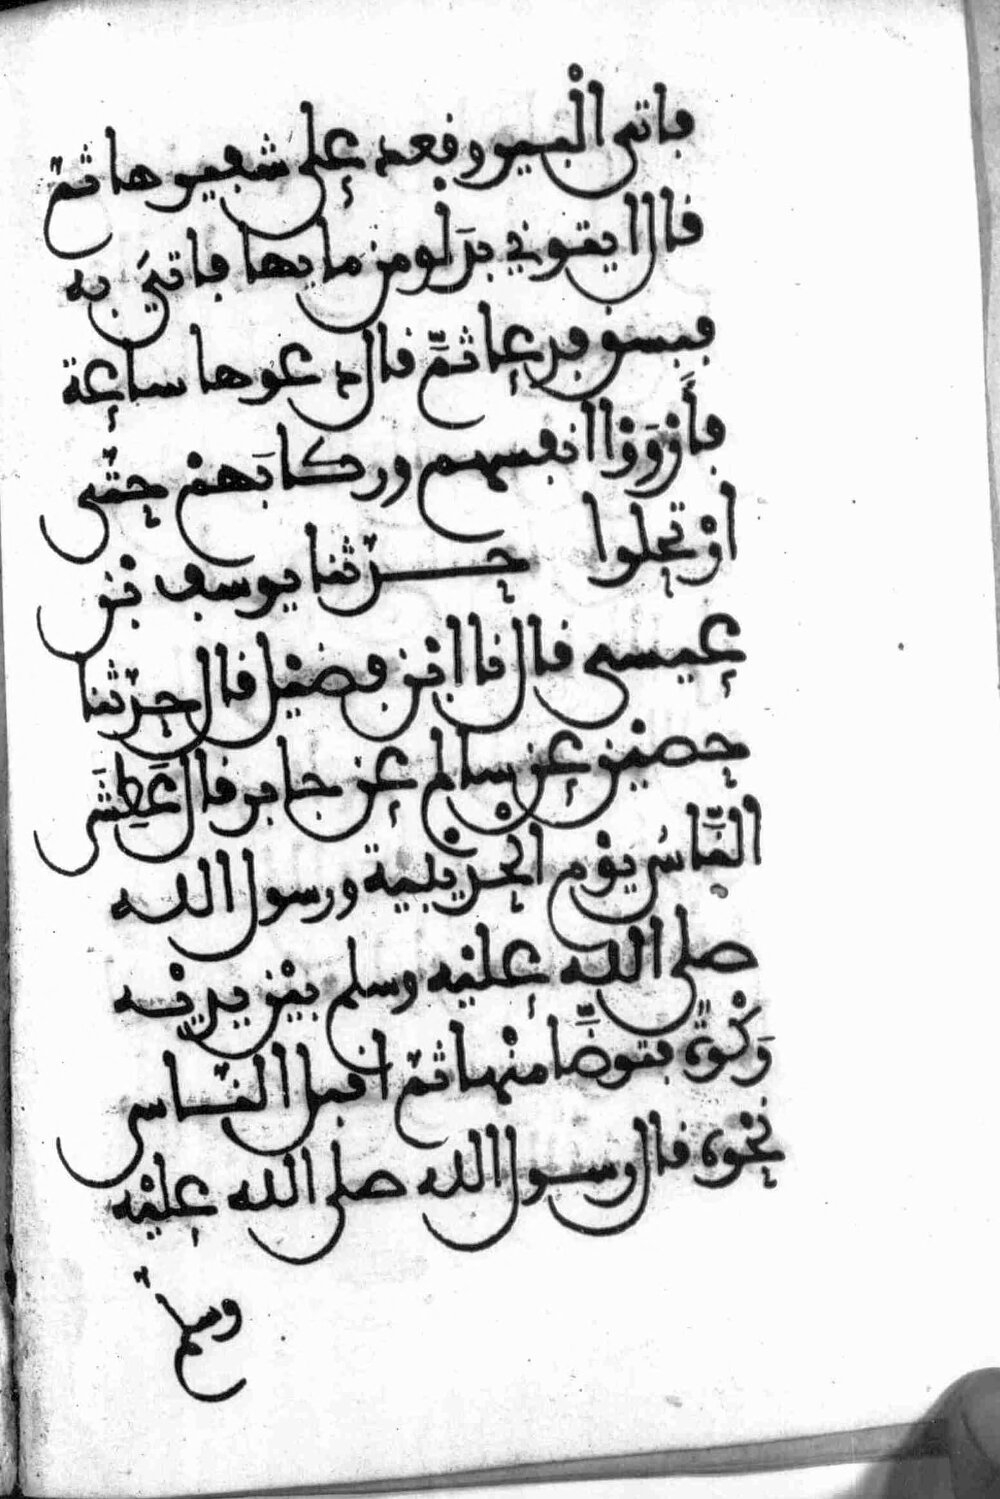 فاتى الْبير وقعد على شفيرها ثمّ
قال ايتوني بدَلْو من مايها فاتيَ به
فبسق فدعا ثمَّ قال دعوها ساعة
فأَرْوَوْا انفسهم وركابَهمْ حتّى
ارْتحلوا حدّثنا يوسف بْن
عيسى قال نا ابْن فضيْل قال حدّثنا
حصيْن عن سالم عن جابر قال عَطِشَ
النَّاسُ يوْم الْحديْبية ورسول الله
صلى الله عليْه وسلم بيْن يديْه
رَكْوَةٌ فتوضَّا منْها ثمّ اقبل النّاس
نحْوه قال رسول الله صلى الله عليْه
وسلّم